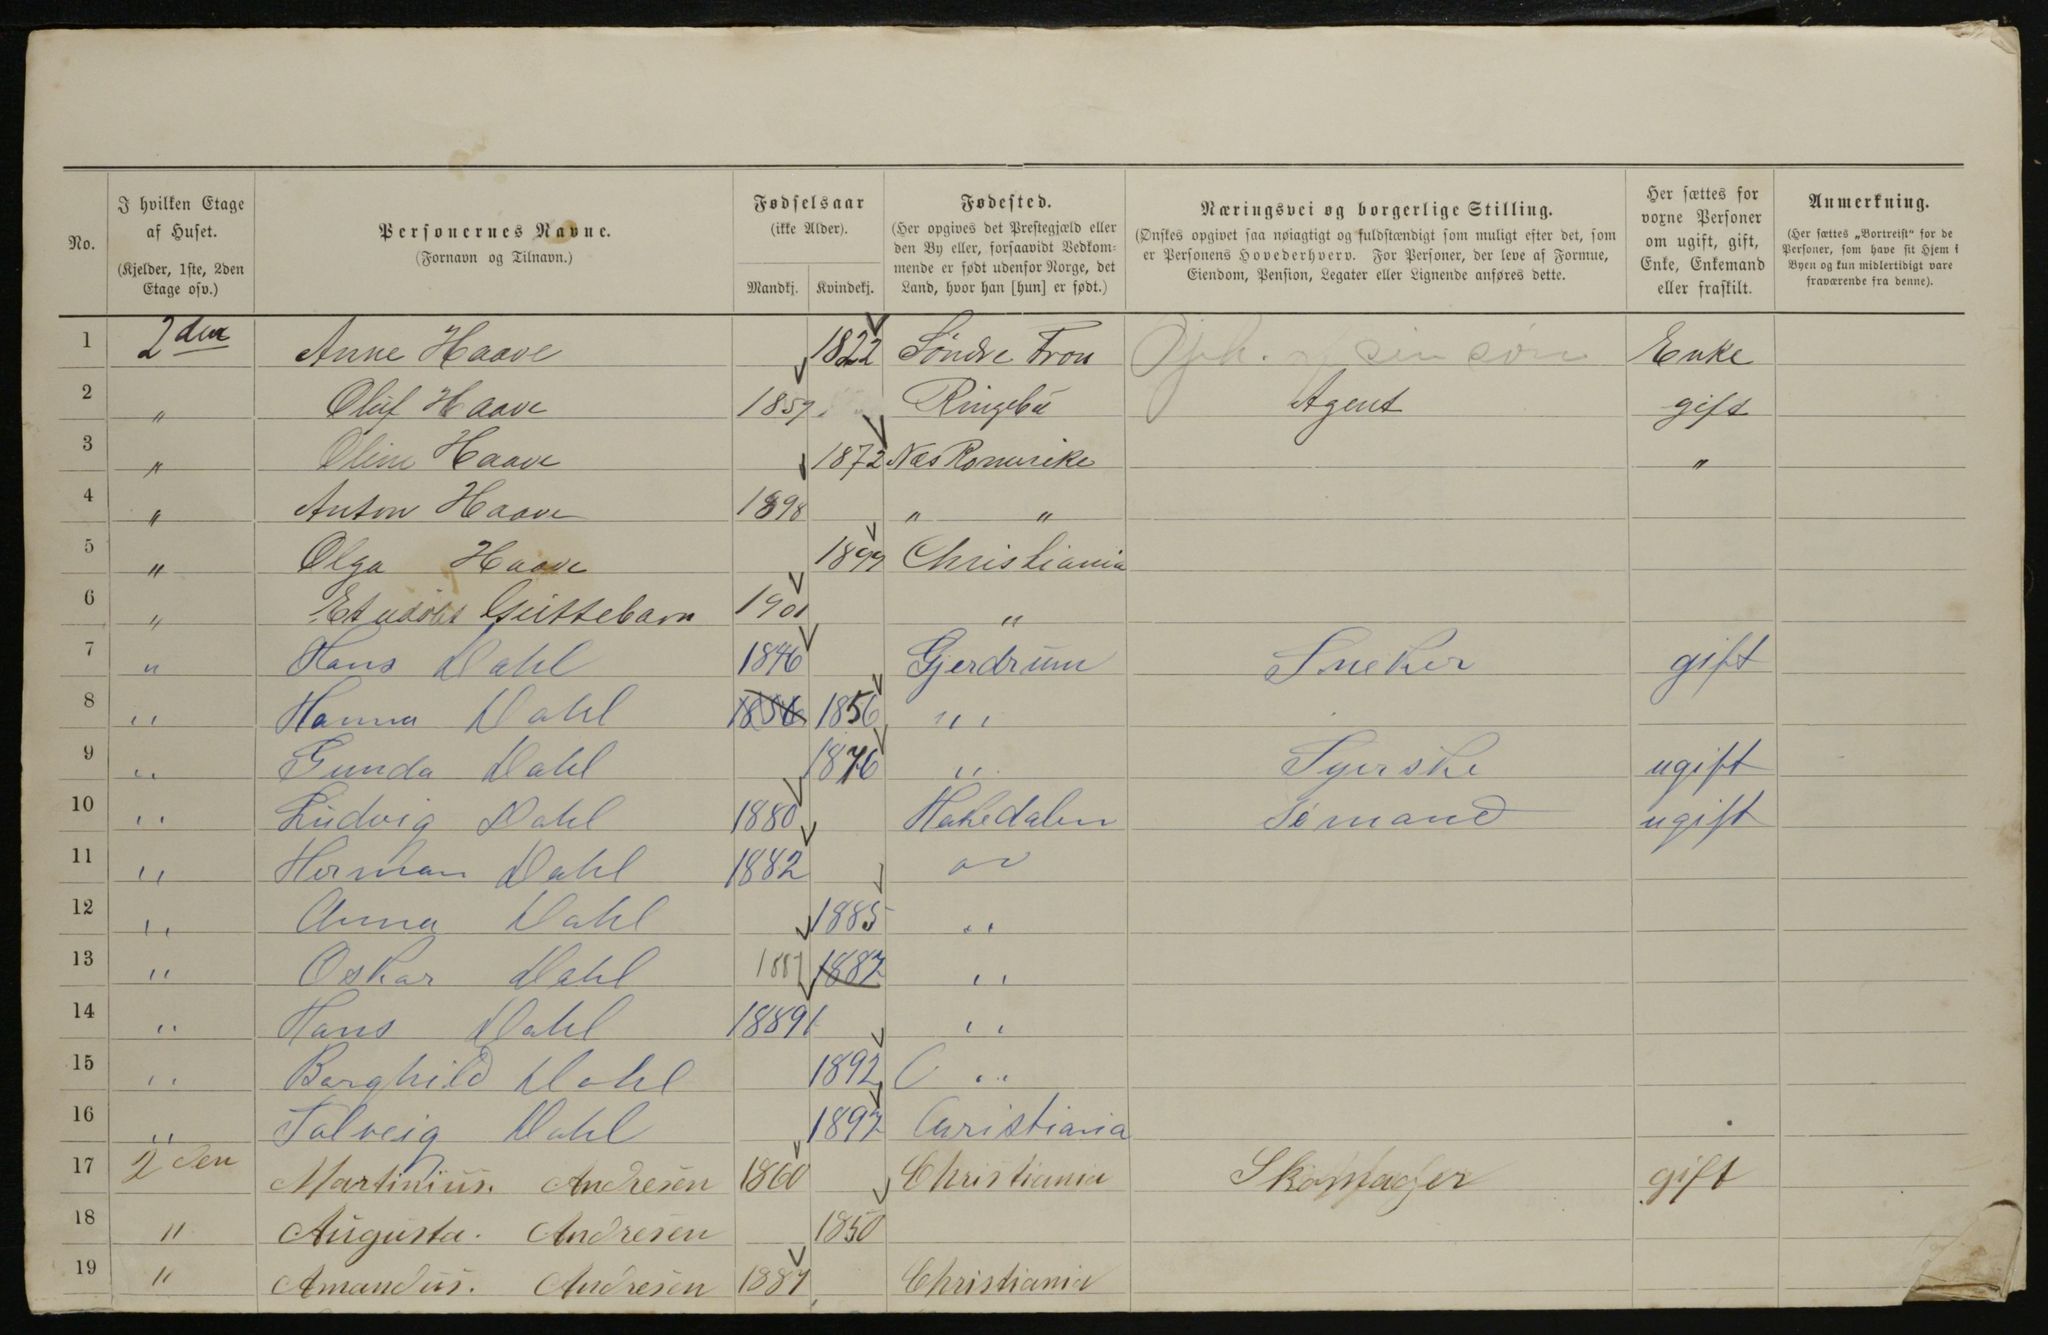 No.
I hvilken Etage af Huset. (Kjelder, 1ste, 2den Etage osv.)
Personernes Navne. (Fornavn og Tilnavn.)
Fødselsaar (ikke Alder). Mandkj. Kvindekj.
Fødested. (Her opgives det Prestegjæld eller den By eller, forsaavidt Vedkommende er født udenfor Norge, det Land, hvor han [hun] er født.)
Næringsvei og borgerlige Stilling. (Ønskes opgivet saa nøiagtigt og fuldstændigt som muligt efter det, som er Personens Hovederhverv. For Personer, der leve af Formue, Eiendom, Pension, Legater eller Lignende anføres dette.)
Her sættes for voxne Personer om ugift, gift, Enke, Enkemand eller fraskilt.
Anmerkning. (Her sættes „Bortreist“ for de Personer, som have sit Hjem i Byen og kun midlertidigt vare fraværende fra denne).
1 2den Anne Haave 1822 Søndre Fron sin søn Enke
2 " Oluf Haave 1859 Ringebu Agent gift
3 " Oline Haave 1872 Næs Romerike "
4 " Anton Haave 1898 " "
5 " Olga Haave 1899 Christiania
6 " Et udøbt Guttebarn 1901 "
7 " Hans Dahl 1846 Gjerdrum Sneker gift
8 " Hanna Dahl 1856 1856 "
9 " Gunda Dahl 1876 " Syerske ugift
10 " Ludvig Dahl 1880 Hakedalen Sømand ugift
11 " Herman Dahl 1882
12 " Anna Dahl 1885 "
13 " Oskar Dahl 1887 1887 "
14 " Hans Dahl 1889 "
15 " Borghild Dahl 1892 "
16 " Solveig Dahl 1897 Christiania
17 2den Martinius. Andresen 1860 Christiania Skomager gift
18 " Augusta. Andresen 1850
19 " Amandus. Andresen 1887 Christiania